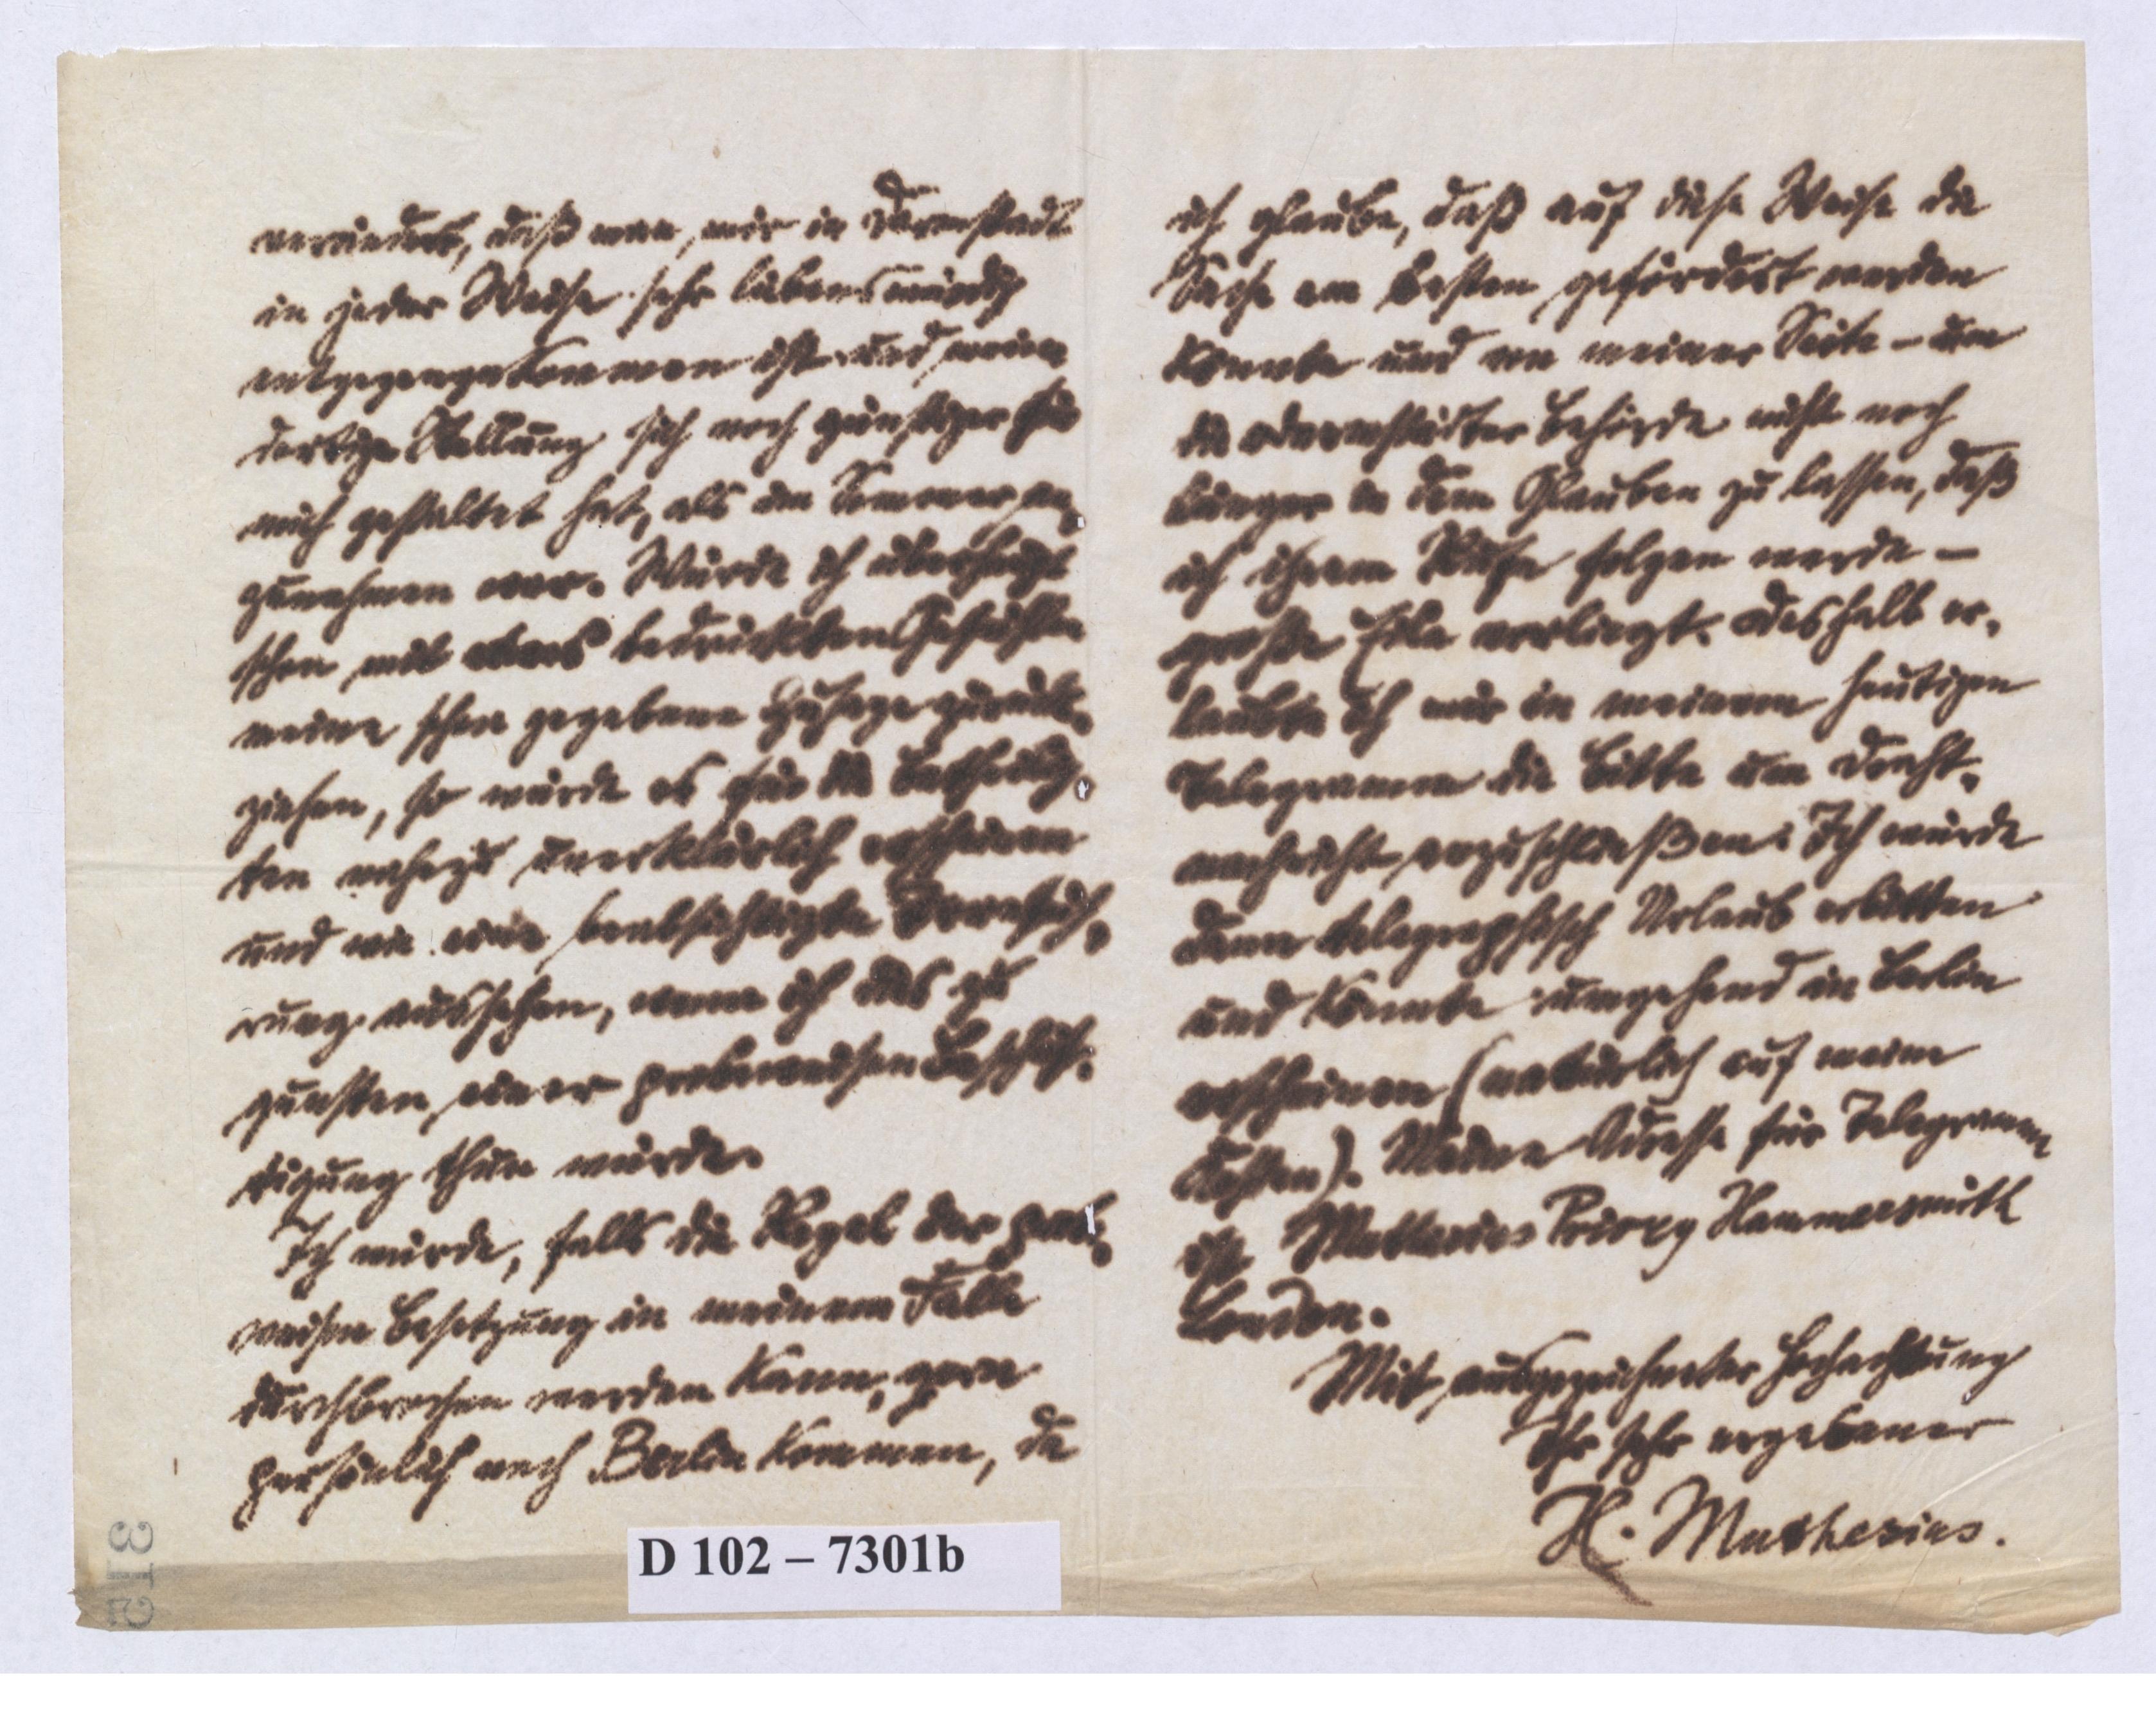 verändert, daß man mir in Darmstadt
in jeder Weise sehr liebenswürdig
entgegengekommen ist und meine
dortige Stellung sich noch günstiger für
mich gestaltet hat, als im Sommer an-
zunehmen war. Würde ich überhaupt
schon mit etwas bedrückten Gefühlen
meine schon gegebene Zusage zurück-
ziehen, so würde es für die Betheilig-
ten nahezu unerklärlich erscheinen
und wie eine beabsichtigte Irrefüh-
rung aussehen, wenn ich das zu
gunsten einer probeweisen Beschäf-
tigung thun würde.
Ich würde, falls die Regel der probe-
weisen Besetzung in meinem Falle
durchbrochen werden kann, gern
persönlich nach Berlin kommen, da
ich glaube, daß auf diese Weise die
Sache am besten gefördert werden
könnte und von meiner Seite – um
die Darmstädter Behörde nicht noch
länger in dem Glauben zu lassen, daß
ich ihrem Rufe folgen werde –
große Eile vorliegt. Deshalb er-
laubte ich mir in meinem heutigen
Telegramm die Bitte um Draht-
nachricht anzuschließen. Ich würde
dann telegraphisch Urlaub erbitten
und könnte umgehend in Berlin
erscheinen (natürlich auf meine
Kosten). Meine Adresse für Telegramm
ist Muthesius Priory Hammersmith
London.
Mit ausgezeichneter Hochachtung
Ihr sehr ergebener
H. Muthesius.
D 102 – 7301b